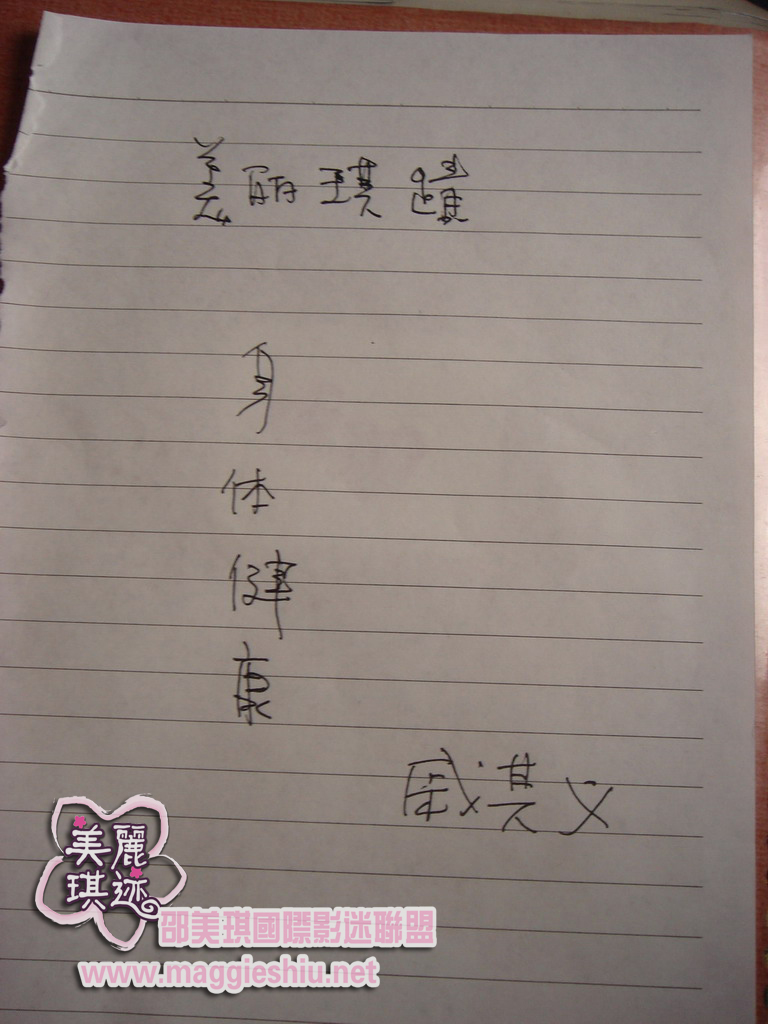 美丽琪蹟
身体健康
戚其义
美麗
琪迹
邵美琪國際影迷聯盟
www.maggieshiu.net